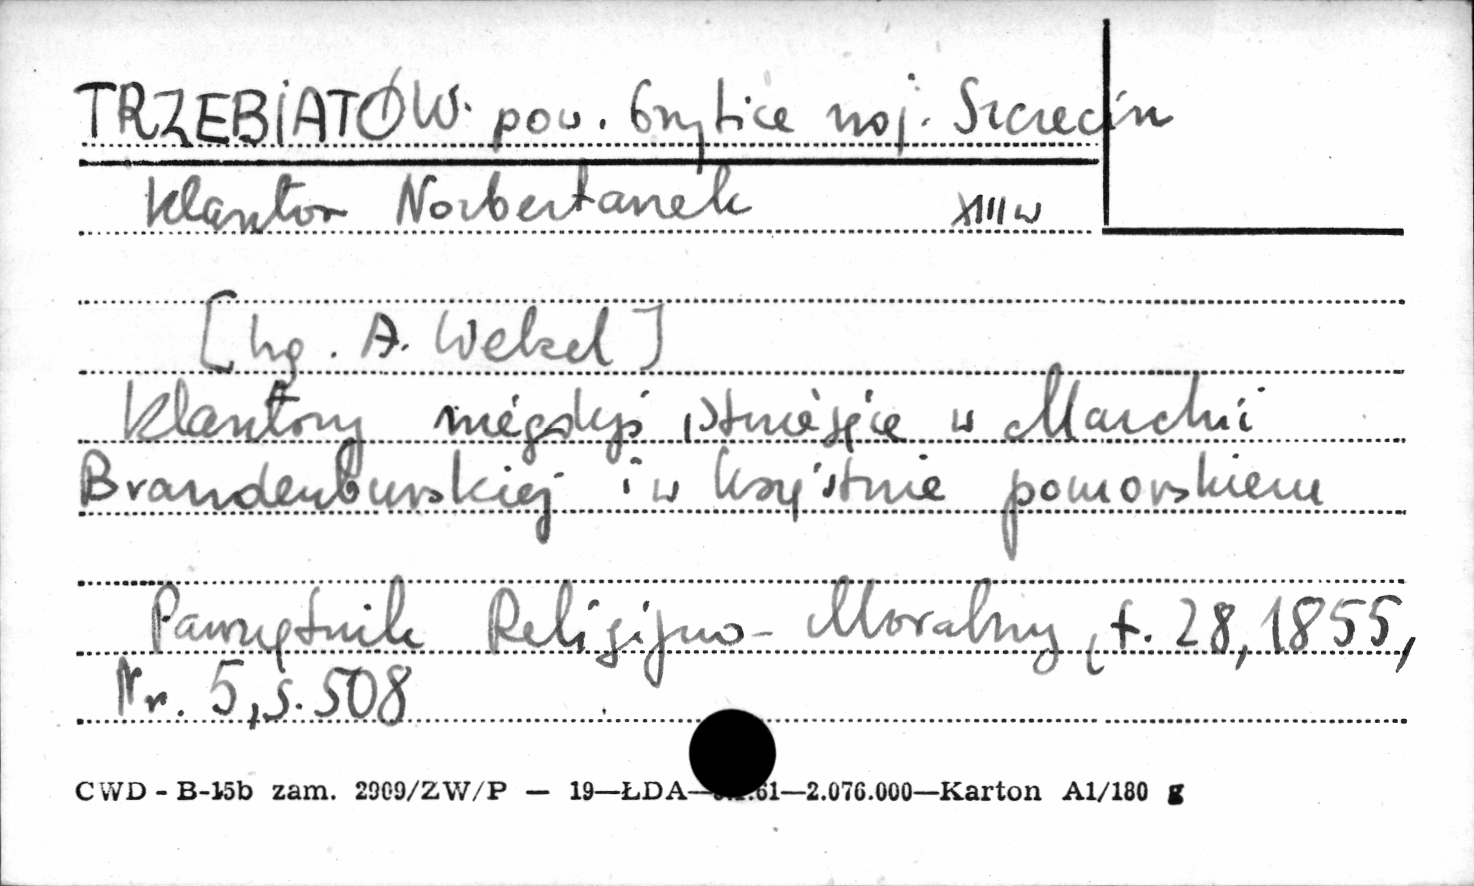 TRZEBIATÓW pow. Gryfice woj. Szczecin
klasztor Norbertanek XIII w
[hg. A. Weksel]
Klasztory niegdyś istniejące w Marchii
Brandenburskiej i w księstwie pomorskiem
Pamiętnik Religijno-Moralny, t. 28, 1855,
Nr. 5, s. 508
CWD - B-15b zam. 2909/ZW/P — 19—ŁDA— 61—2.076.000—Karton A1/180 g